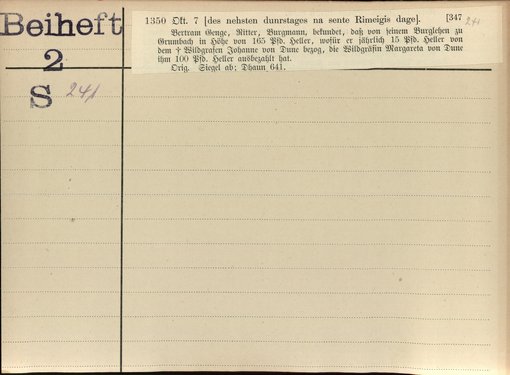 Beiheft
2
S 241
1350 Okt. 7 [des nehsten dunrstages na sente Rimeigis dage]. [347 241
Bertram Genge, Ritter, Burgmann, bekundet, daß von seinem Burglehen zu
Grumbach in Höhe von 165 Pfd. Heller, wofür er jährlich 15 Pfd. Heller von
dem † Wildgrafen Johanne von Dune bezog, die Wildgräfin Margareta von Dune
ihm 100 Pfd. Heller ausbezahlt hat.
Orig. Siegel ab; Dhaun 641.